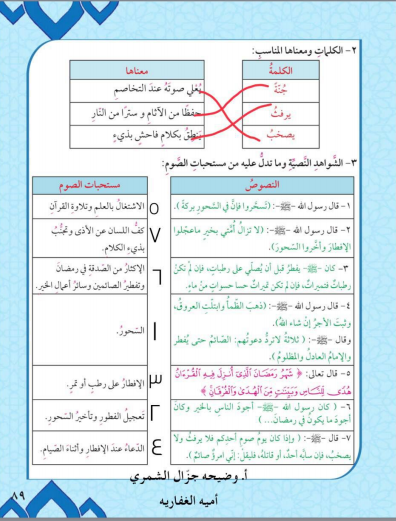 ٢- الكلماتِ ومعناها المناسبَ:
الكلمةُ
معناها
جُنَّةٌ
يُعْلي صوتَهُ عندَ التخاصمِ
يرفثُ
حفظًا من الآثامِ و سترًا من النَّارِ
يصخبُ
ينطِقُ بكلامٍ فاحشٍ بذيءٍ
٣- الشَّواهدِ النَّصيَّةِ وما تدلُّ عليه من مستحباتِ الصَّومِ:
النصوصُ
مستحبات الصوم
١- قال رسول الله -ﷺ-: (تسحَّروا فإنَّ في السَّحورِ بركةً).
٥
الاشتغالُ بالعلمِ وتلاوةِ القرآنِ
٢- قال رسول الله -ﷺ-: (لا تزالُ أمَّتي بخيرٍ ماعجلوا
الإفطارَ وأخَّروا السَّحورَ).
٧
كفُّ اللسان عن الأذى وتجنُّبُ
بذيءِ الكلامِ.
٣- كان -ﷺ- يفطرُ قبلَ أن يُصلّيَ على رطباتٍ، فإن لم تكنْ
رطباتٌ فتميراتٌ، فإن لم تكنْ تميراتٌ حسا حسواتٍ منْ ماءٍ.
٦
الإكثارُ من الصّدقةِ في رمضانَ
وتفطير الصائمين وسائرُ أعمالِ الخيرِ.
٤- قال رسول الله -ﷺ-: (ذهبَ الظّمأُ وابتلّتِ العروقُ،
وثبتَ الأجرُ إنْ شاءَ اللهُ).
وقال -ﷺ-: ( ثلاثةٌ لاتردُّ دعوتُهم: الصَّائمُ حتى يُفطرَ
والإمامُ العادلُ والمظلومُ ).
١
السّحورُ.
٥- قال تعالى: ﴿ شَهْرُ رَمَضَانَ ٱلَّذِىٓ أُنزِلَ فِيهِ ٱلْقُرْءَانُ
هُدًى لِّلنَّاسِ وَبَيِّنَٰتٍ مِّنَ ٱلْهُدَىٰ وَٱلْفُرْقَانِ ﴾
٣
الإفطارُ على رطبٍ أو تمرٍ.
٦- ( كان رسول الله -ﷺ- أجودَ الناسِ بالخيرِ وكانَ
أجودَ ما يكونُ في رمضانَ... )
٢
تعجيلُ الفطورِ وتأخيرُ السّحورِ.
٧- قال -ﷺ-: ( وإذا كانَ يومُ صومِ أحدِكم فلا يرفثْ ولا
يصخبْ، فإن سابَّه أحدٌ، أو قاتلهُ، فليقلْ: إنّي امرؤٌ صائمٌ ).
٤
الدّعاءُ عندَ الإفطارِ وأثناءَ الصّيامِ.
أ. وضيحه جزال الشمري
أميه الغفاريه
٨٩